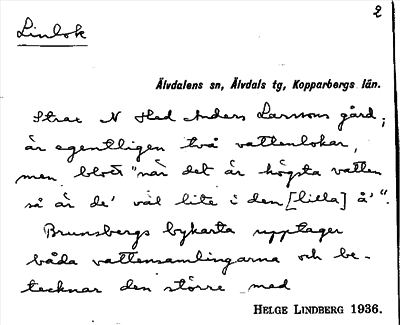 2
Linlok
Älvdalens sn, Älvdals tg, Kopparbergs län.
Strax N Hed Anders Larssons gård;
är egentligen två vattenlokar,
men blott "när det är högsta vatten
så är de' väl lite i den [lilla] å'".
Brunsbergs bykarta upptager
båda vattensamlingarna och be-
tecknar den större med
HELGE LINDBERG 1936.